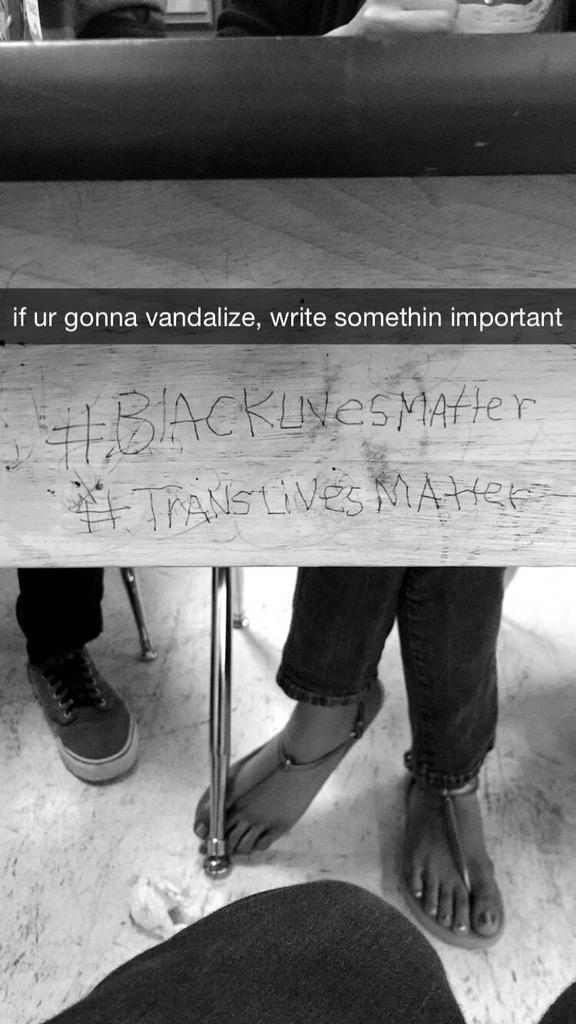 if ur gonna vandalize, write somethin important
#BlACKLivesMAtter
#TrANSLiVesMAtter